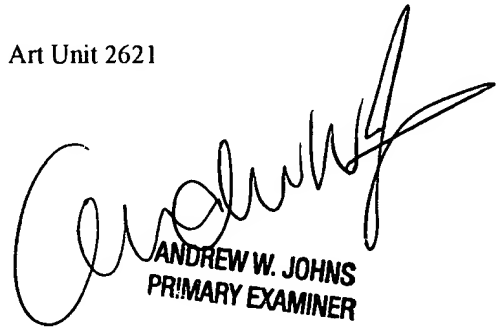 Art Unit 2621
ANDREW W. JOHNS
PRIMARY EXAMINER